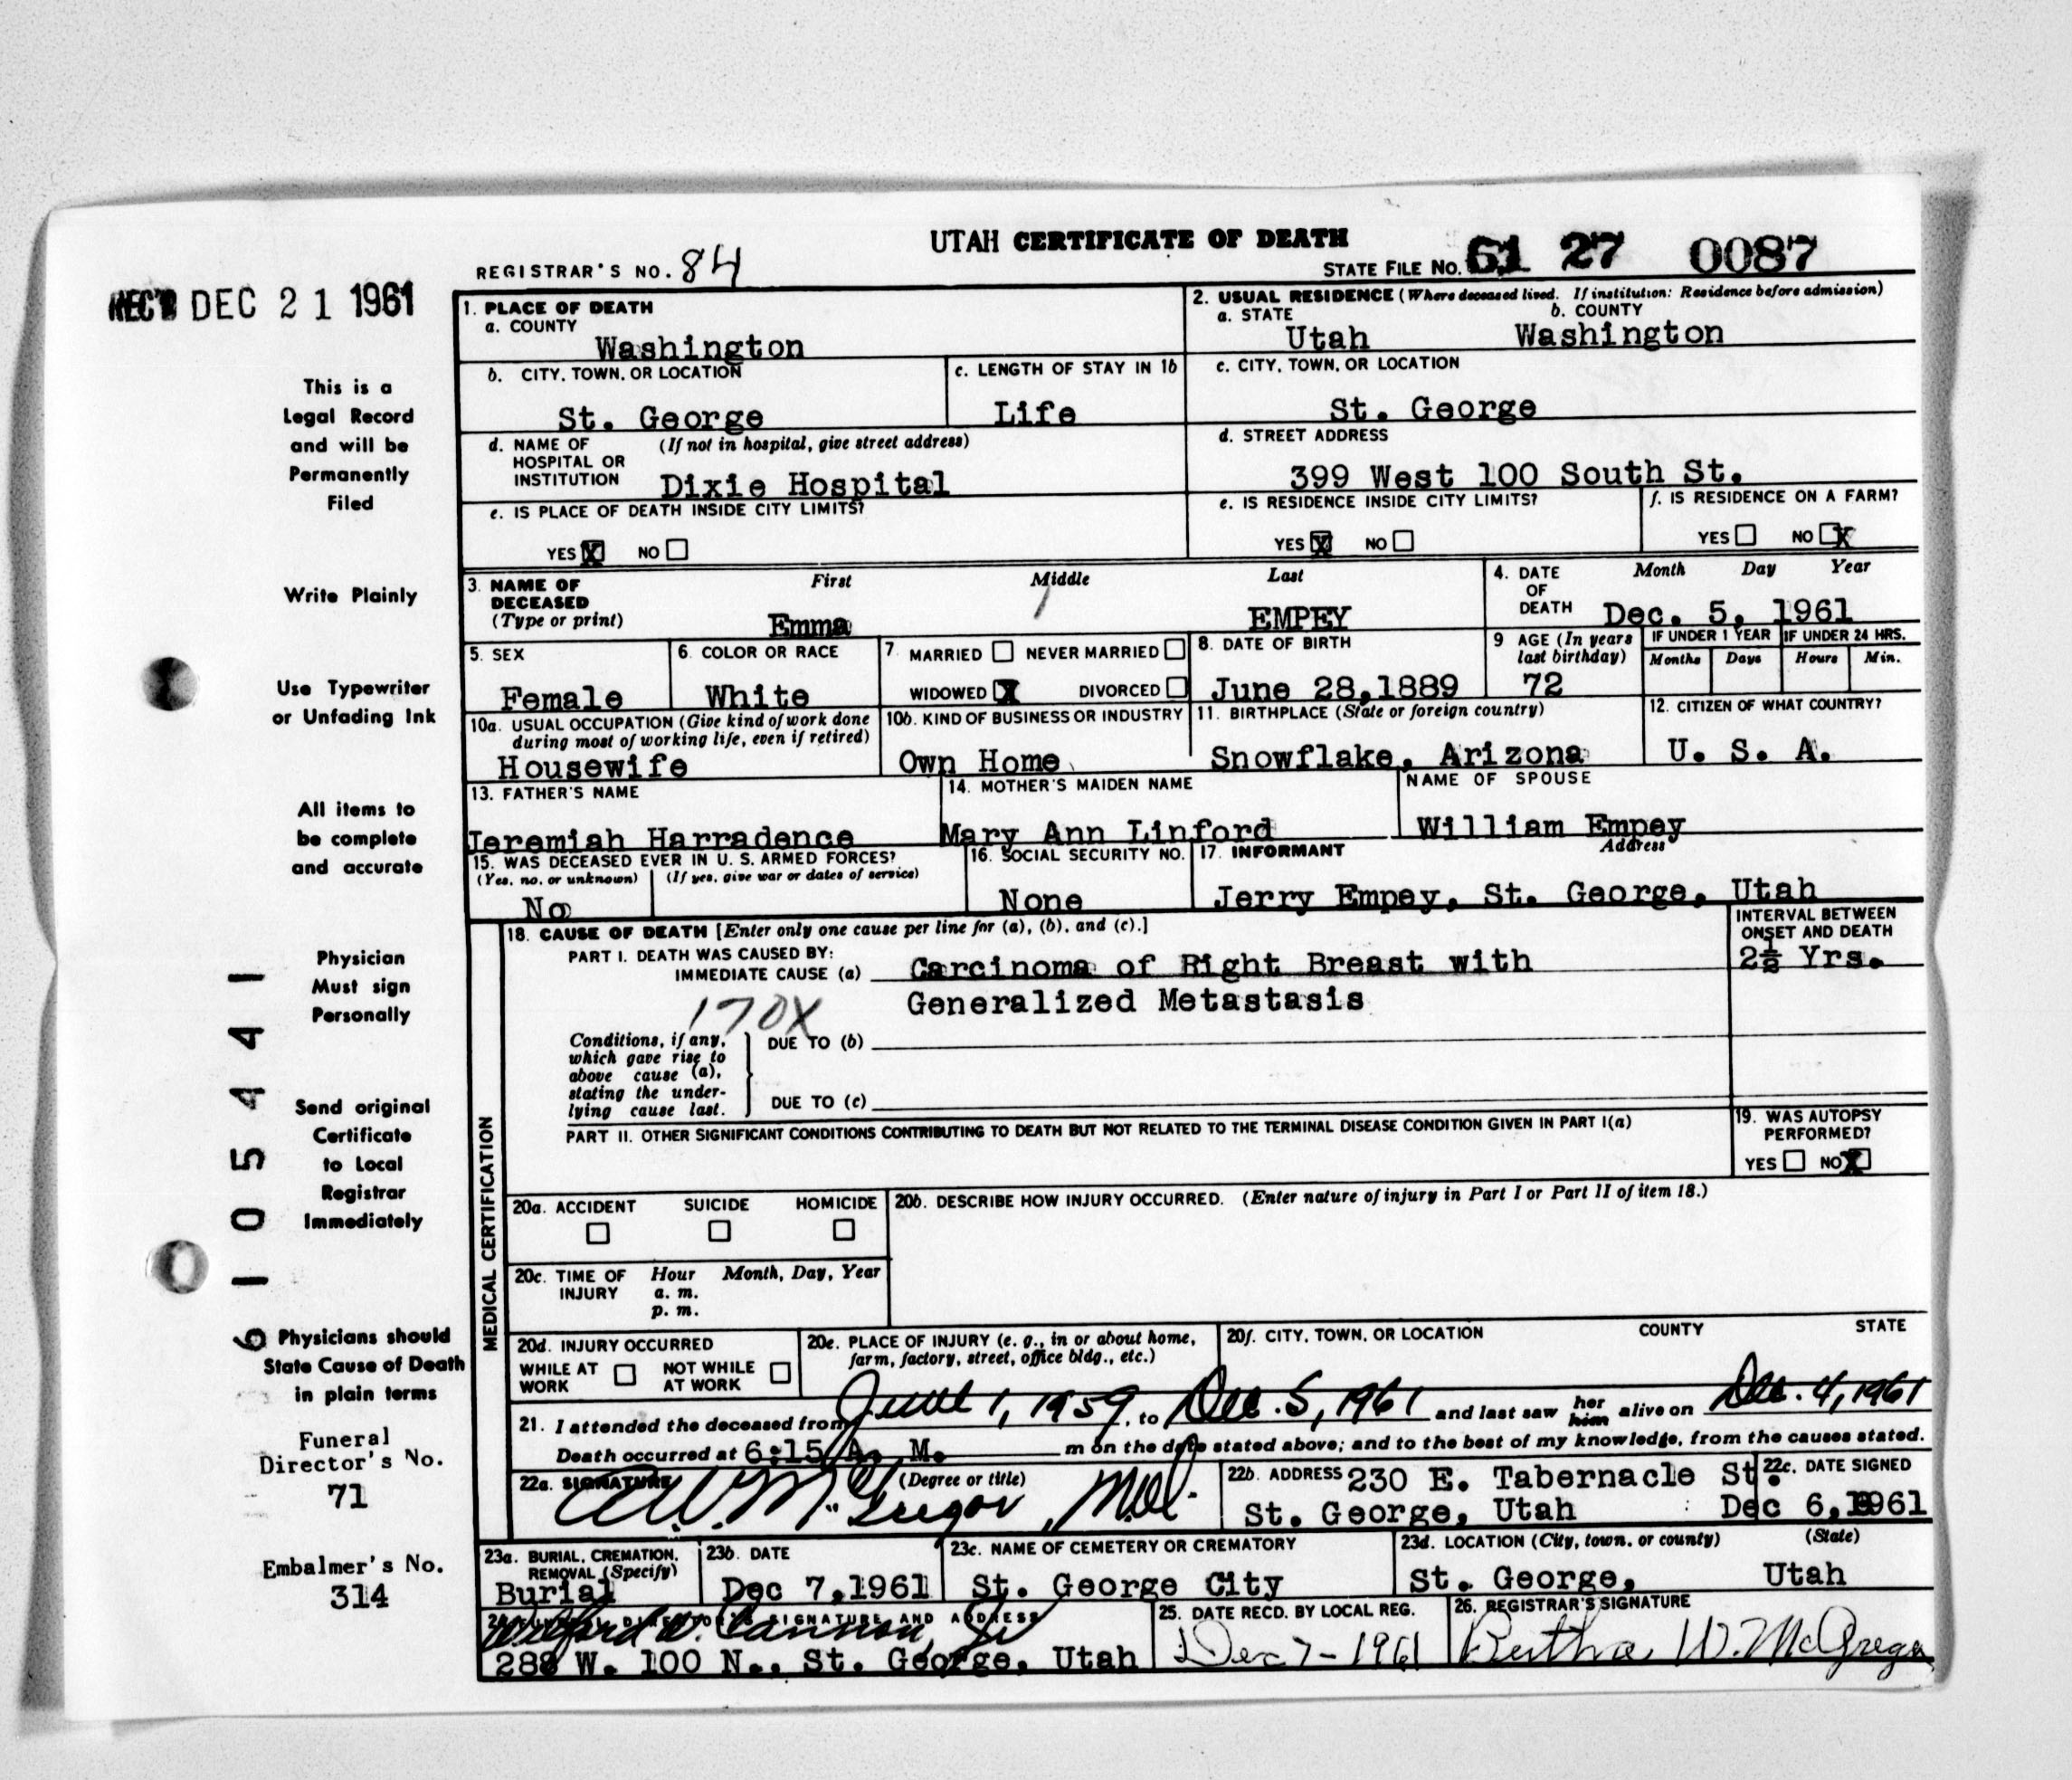 UTAH CERTIFICATE OF DEATH
REGISTRAR'S NO. 84
STATE FILE NO. 61 27 0087
REC'D DEC 21 1961
This is a
Legal Record
and will be
Permanently
Filed
Write Plainly
Use Typewriter
or Unfading Ink
All items to
be complete
and accurate
Physician
Must sign
Personally
Send original
Certificate
to Local
Registrar
Immediately
Physicians should
State Cause of Death
in plain terms
Funeral
Director's No.
71
Embalmer's No.
314
6 1 0 5 4 4 1
1. PLACE OF DEATH
a. COUNTY
Washington
2. USUAL RESIDENCE (Where deceased lived. If institution: Residence before admission)
a. STATE b. COUNTY
Utah Washington
b. CITY, TOWN, OR LOCATION
St. George
c. LENGTH OF STAY IN 1b
Life
c. CITY, TOWN, OR LOCATION
St. George
d. NAME OF (If not in hospital, give street address)
HOSPITAL OR
INSTITUTION Dixie Hospital
d. STREET ADDRESS
399 West 100 South St.
e. IS PLACE OF DEATH INSIDE CITY LIMITS?
YES X NO
e. IS RESIDENCE INSIDE CITY LIMITS?
YES X NO
f. IS RESIDENCE ON A FARM?
YES NO X
3. NAME OF First Middle Last
DECEASED
(Type or print) Emma EMPEY
4. DATE Month Day Year
OF
DEATH Dec. 5, 1961
5. SEX
Female
6. COLOR OR RACE
White
7. MARRIED NEVER MARRIED
WIDOWED X DIVORCED
8. DATE OF BIRTH
June 28,1889
9 AGE (In years
last birthday)
72
IF UNDER 1 YEAR
Months Days
IF UNDER 24 HRS.
Hours Min.
10a. USUAL OCCUPATION (Give kind of work done
during most of working life, even if retired)
Housewife
10b. KIND OF BUSINESS OR INDUSTRY
Own Home
11. BIRTHPLACE (State or foreign country)
Snowflake, Arizona
12. CITIZEN OF WHAT COUNTRY?
U. S. A.
13. FATHER'S NAME
Jeremiah Harradence
14. MOTHER'S MAIDEN NAME
Mary Ann Linford
NAME OF SPOUSE
William Empey
15. WAS DECEASED EVER IN U. S. ARMED FORCES?
(Yes, no, or unknown) (If yes, give war or dates of service)
No
16. SOCIAL SECURITY NO.
None
17. INFORMANT Address
Jerry Empey, St. George, Utah
MEDICAL CERTIFICATION
18. CAUSE OF DEATH [Enter only one cause per line for (a), (b), and (c).]
INTERVAL BETWEEN
ONSET AND DEATH
PART I. DEATH WAS CAUSED BY:
IMMEDIATE CAUSE (a) Carcinoma of Right Breast with
2½ Yrs.
Generalized Metastasis
170X
Conditions, if any,
which gave rise to
above cause (a),
stating the under-
lying cause last.
DUE TO (b)
DUE TO (c)
PART II. OTHER SIGNIFICANT CONDITIONS CONTRIBUTING TO DEATH BUT NOT RELATED TO THE TERMINAL DISEASE CONDITION GIVEN IN PART I(a)
19. WAS AUTOPSY
PERFORMED?
YES NO X
20a. ACCIDENT SUICIDE HOMICIDE
20b. DESCRIBE HOW INJURY OCCURRED. (Enter nature of injury in Part I or Part II of item 18.)
20c. TIME OF Hour Month, Day, Year
INJURY a. m.
p. m.
20d. INJURY OCCURRED
WHILE AT NOT WHILE
WORK AT WORK
20e. PLACE OF INJURY (e. g., in or about home,
farm, factory, street, office bldg., etc.)
20f. CITY, TOWN, OR LOCATION COUNTY STATE
21. I attended the deceased from June 1, 1959, to Dec. 5, 1961 and last saw her him alive on Dec. 4, 1961
Death occurred at 6:15 A. M. m on the date stated above; and to the best of my knowledge, from the causes stated.
22a. SIGNATURE (Degree or title)
A.W. McGregor, M.D.
22b. ADDRESS 230 E. Tabernacle St.
St. George, Utah
22c. DATE SIGNED
Dec 6, 1961
23a. BURIAL, CREMATION,
REMOVAL (Specify)
Burial
23b. DATE
Dec 7,1961
23c. NAME OF CEMETERY OR CREMATORY
St. George City
23d. LOCATION (City, town, or county) (State)
St. George, Utah
24. FUNERAL DIRECTOR'S SIGNATURE AND ADDRESS
Wilford W. Cannon, Jr
288 W. 100 N., St. George, Utah
25. DATE RECD. BY LOCAL REG.
Dec 7-1961
26. REGISTRAR'S SIGNATURE
Bertha W. McGregor